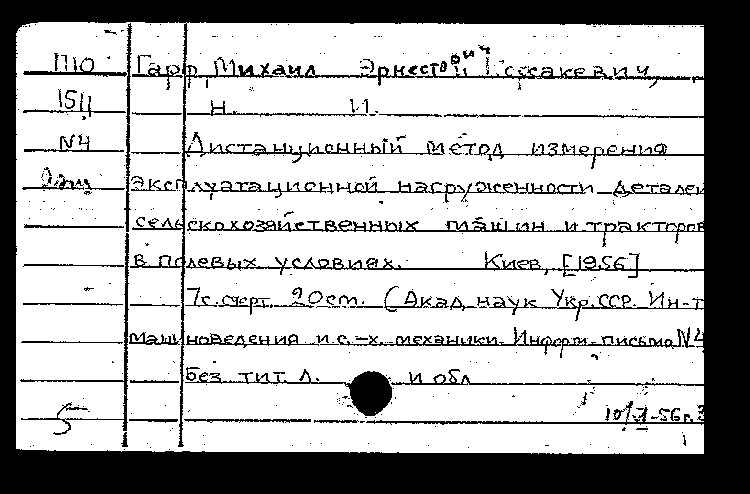 П10 Гарф, Михаил Эрнестович
15Ц Н. И.
N4 Дистанционный метод измерения
эксплуатационной нагруженности деталей
сельскохозяйственных машин и тракторов
в полевых условиях. Киев, [1956]
7с. счерт. 20cm. (Акад. наук Укр.ССР. Ин-т
машиноведения и с.-х. механики. Информ. письмо N4
без тит. л. и обл
5 10/X-56г.